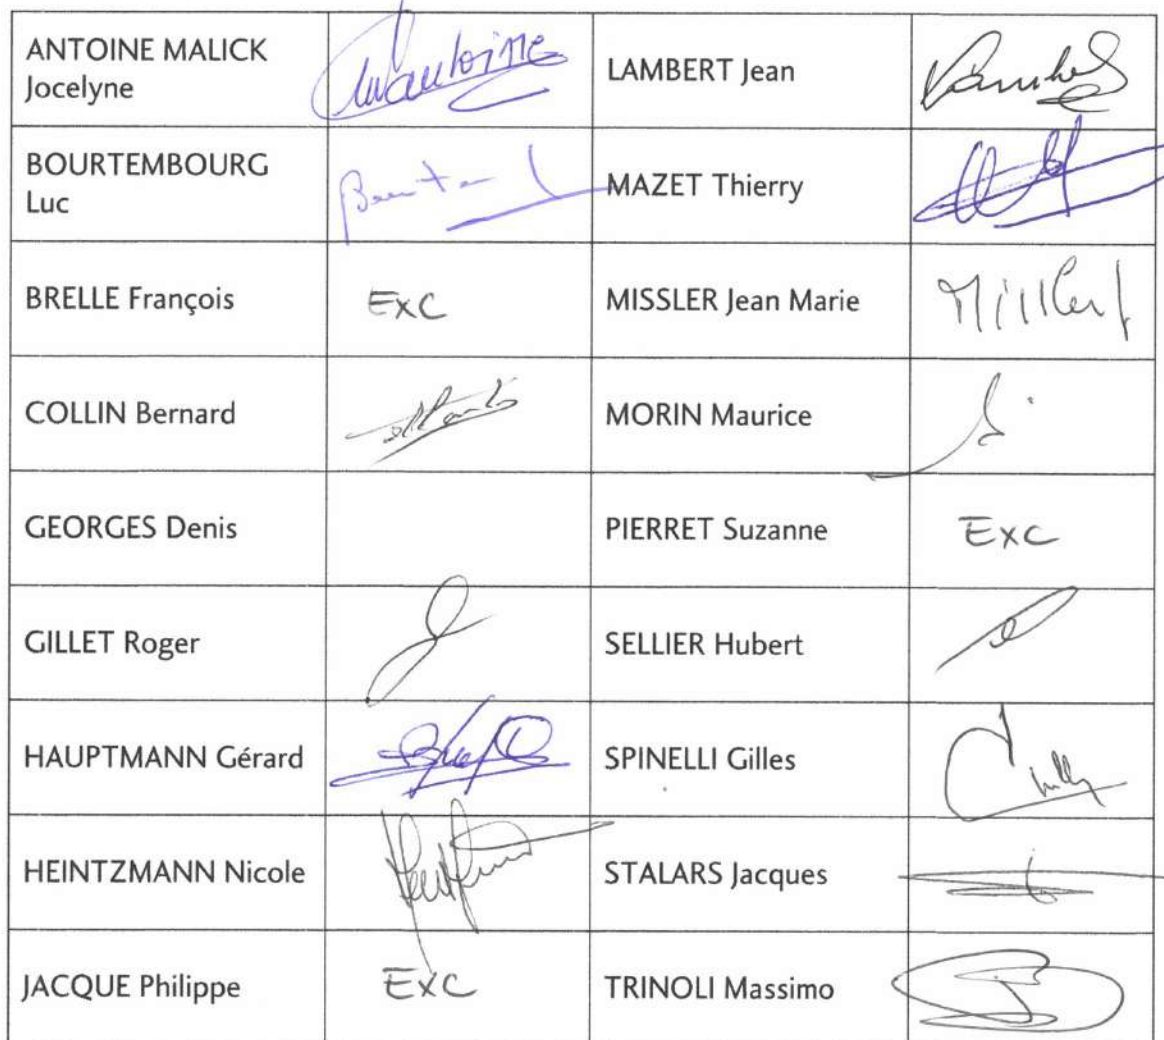 ANTOINE MALICK
Jocelyne
LAMBERT Jean
BOURTEMBOURG
Luc
MAZET Thierry
BRELLE François
EXC
MISSLER Jean Marie
COLLIN Bernard
MORIN Maurice
GEORGES Denis
PIERRET Suzanne
EXC
GILLET Roger
SELLIER Hubert
HAUPTMANN Gérard
SPINELLI Gilles
HEINTZMANN Nicole
STALARS Jacques
JACQUE Philippe
EXC
TRINOLI Massimo